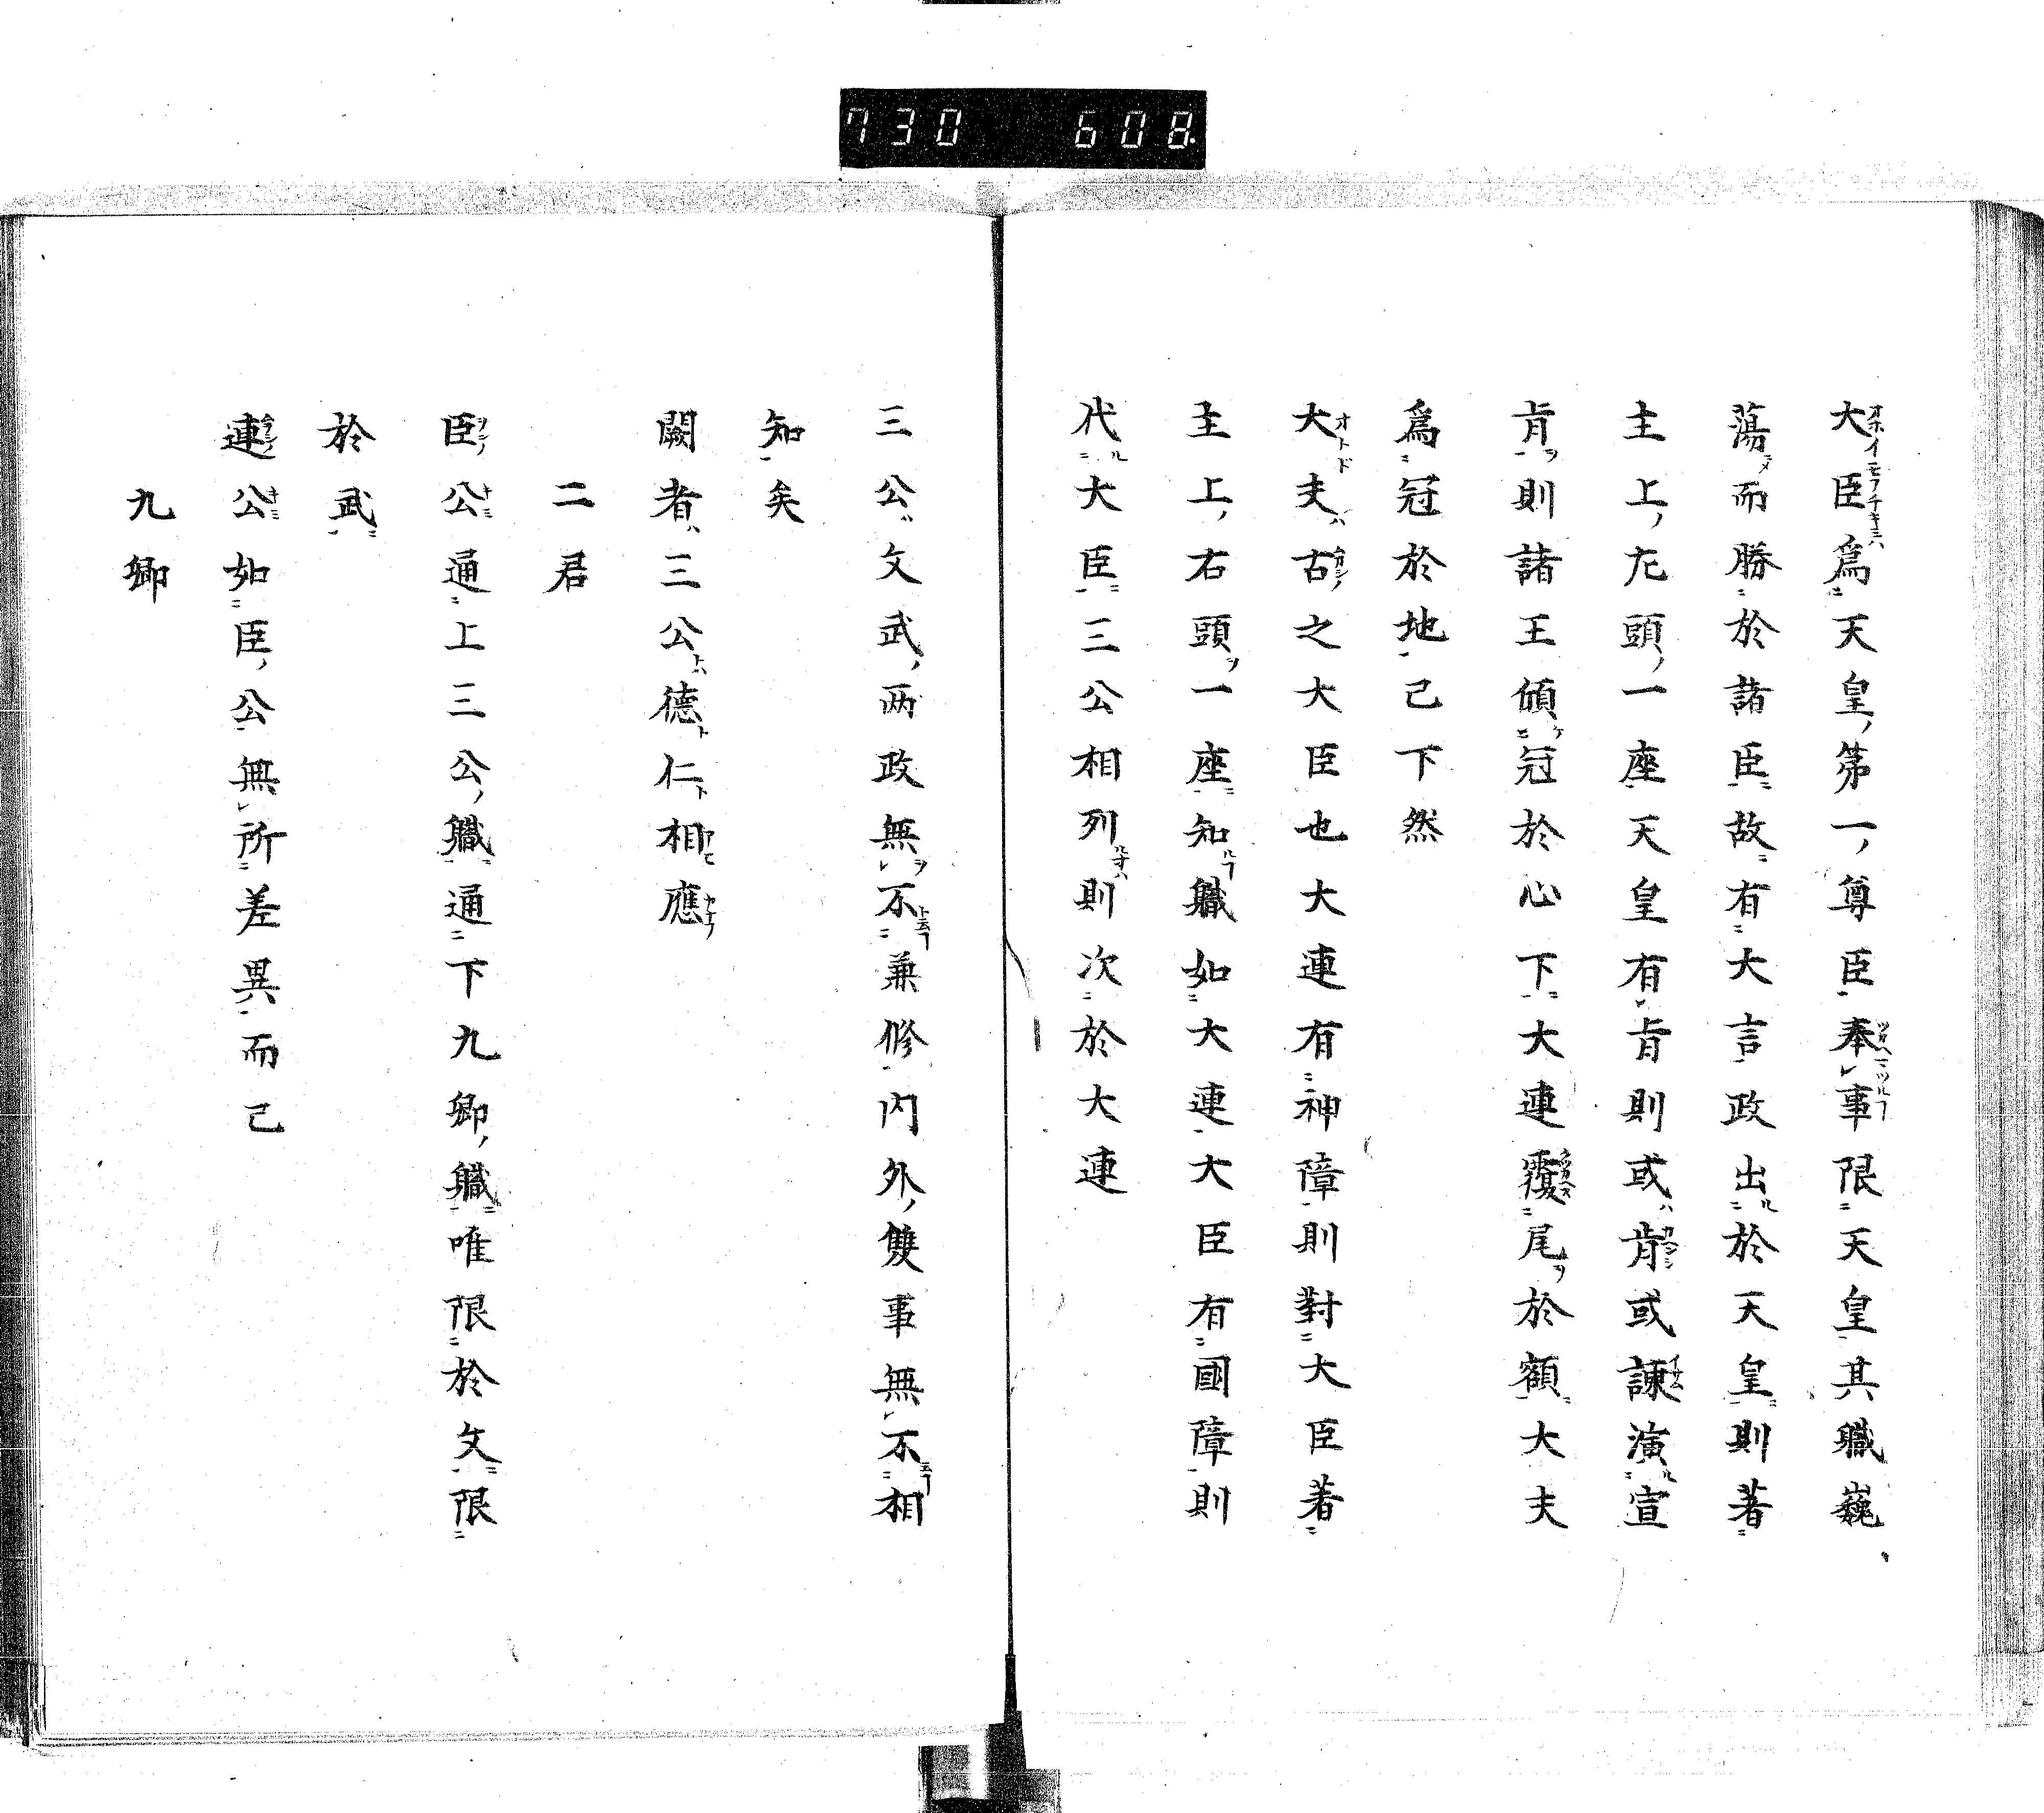 730 608
大臣為天皇第一尊臣奉事限天皇其職巍
蕩而勝於諸臣故有大言政出於天皇則著
主上左頭一座天皇有旨則或肯或諫演宣
旨則諸王傾冠於心下大連覆尾於額大夫
爲冠於地已下然
大夫古之大臣也大連有神障則對大臣著
主上右頭一座知職如大連大臣有國障則
代大臣三公相列則次於大連
三公文武兩政無不兼修内外雙事無不相
知矣
闕者三公德仁相應
二君
臣公通上三公職通下九卿職唯限於文限
於武
連公如臣公無所差異而已
九卿